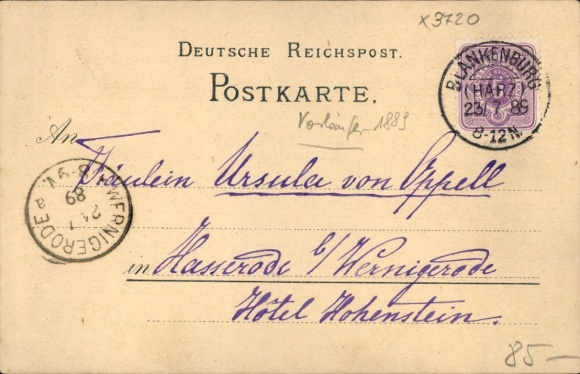 x3720
DEUTSCHE REICHSPOST.
POSTKARTE.
BLANKENBURG
(HARZ)
23.7.89
8-12N.
Vorläufer 1889
An
Fräulein Ursula von Eppell
WERNIGERODE a
24.7
89
8-9V.
in Hasserode b/Wernigerode
Hôtel Hohenstein.
85-